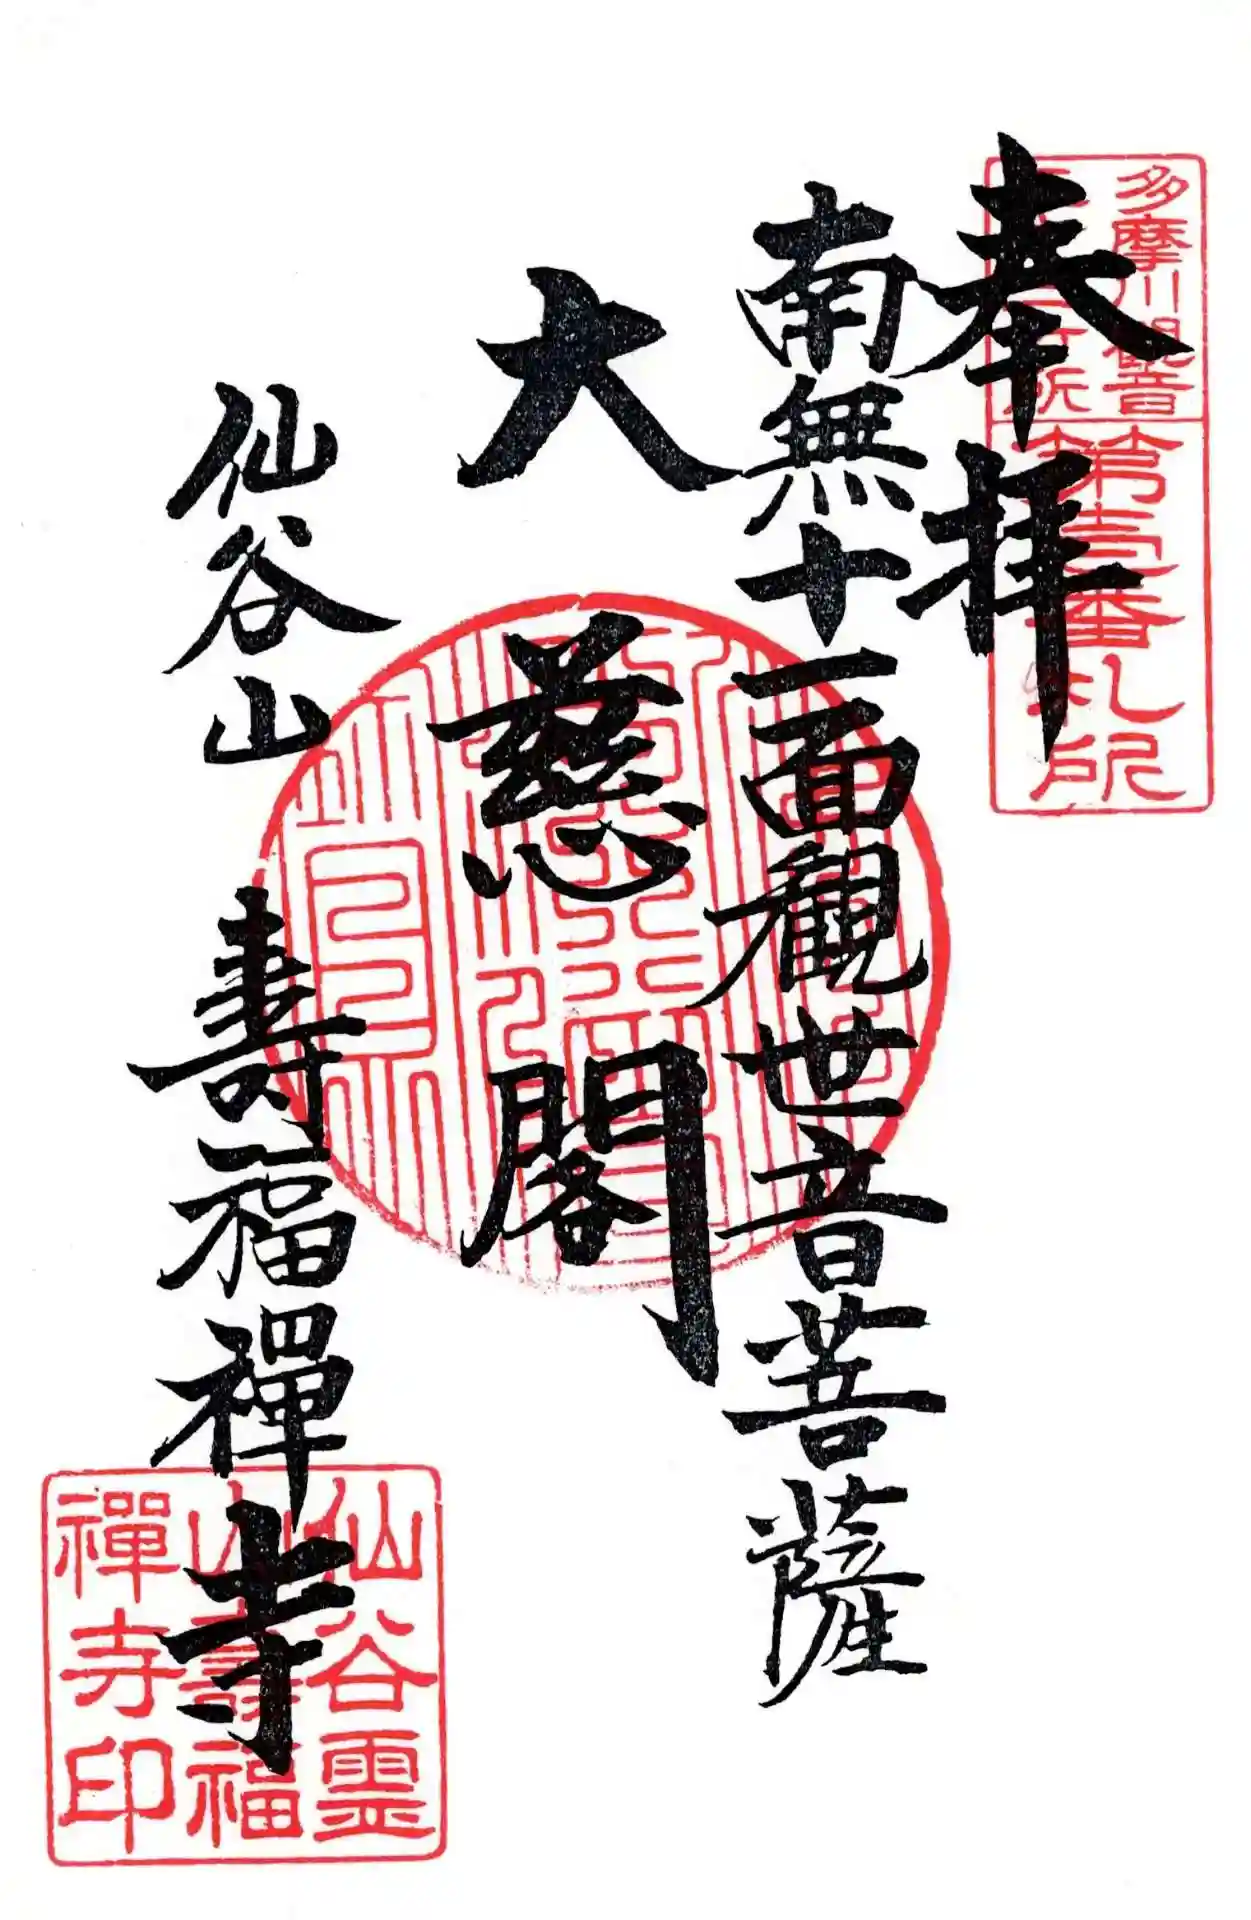 奉拝
多摩川観音
第壱番札所
南無十一面観世音菩薩
大慈閣
仙谷山
壽福禪寺
仙谷霊
山壽福
禪寺印